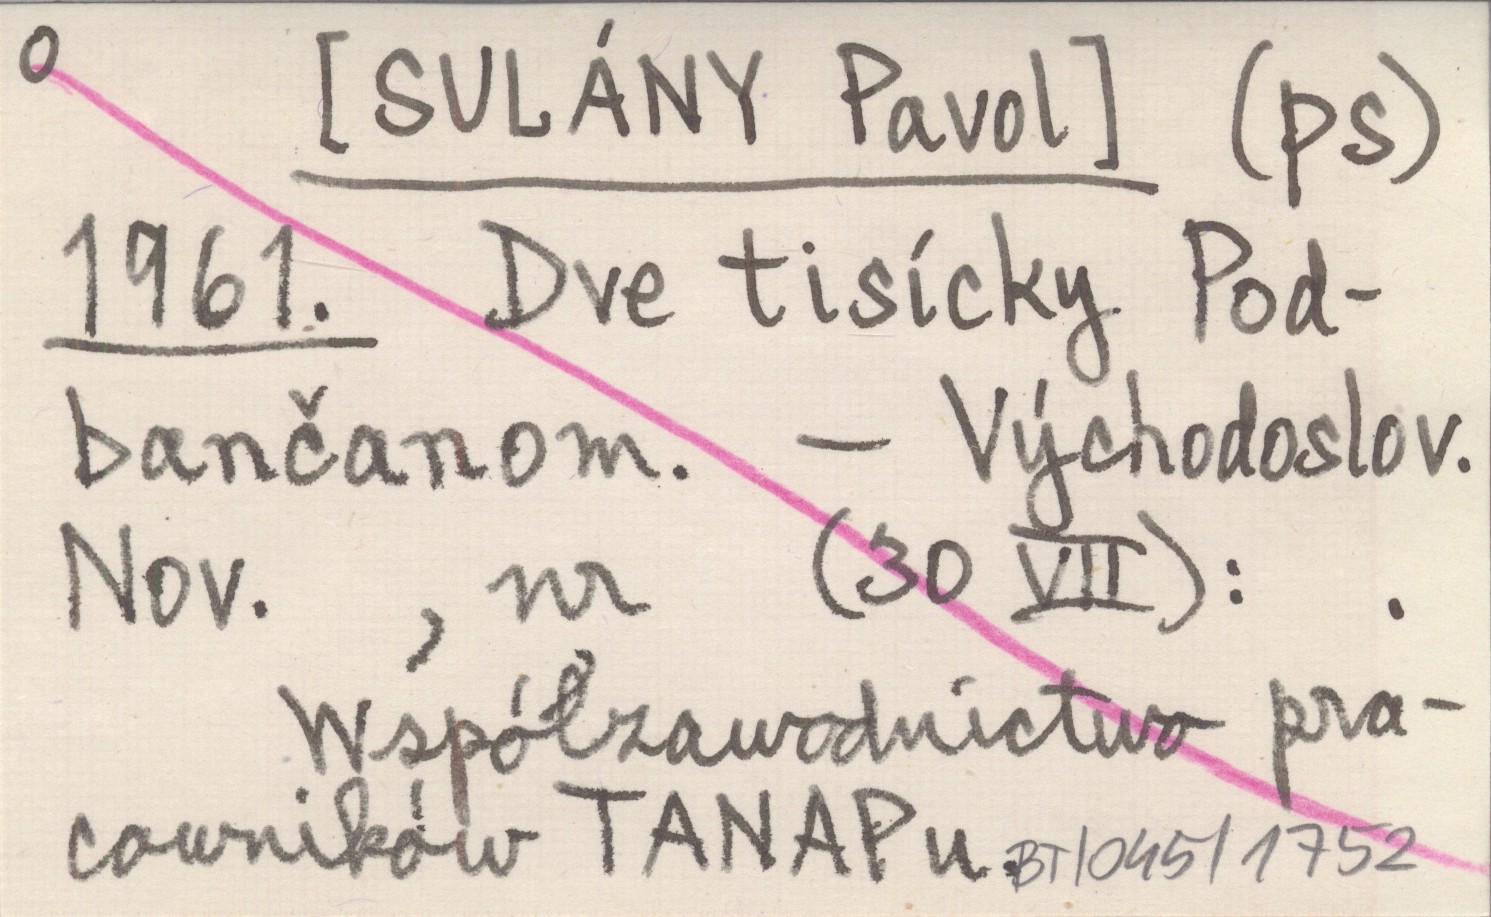 O [SULÁNY Pavol] (ps)
1961. Dve tisícky Pod-
bančanom. - Východoslov.
Nov. , nr (30 VII): .
Współzawodnictwo pra-
cowników TANAPu.
BT/045/1752